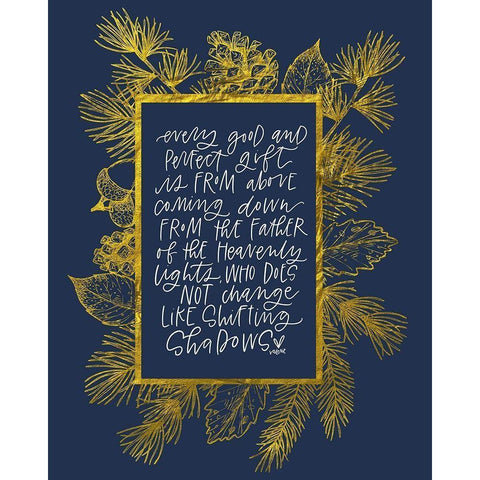 every good and
perfect gift
is FROM above
coming down
FROM the Father
of the Heavenly
lights, WHO DOES
NOT change
LIKE Shifting
ShaDOWS